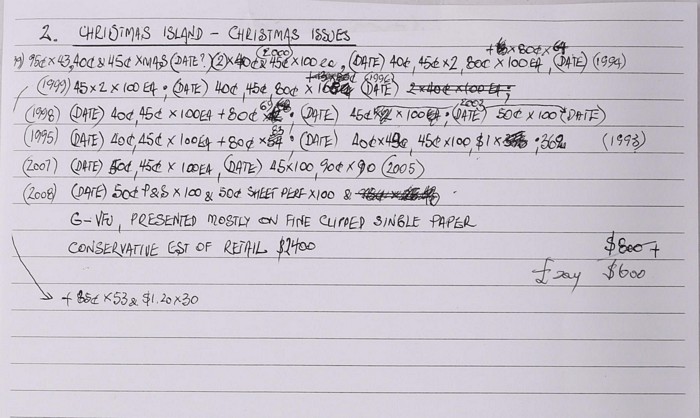 2. CHRISTMAS ISLAND - CHRISTMAS ISSUES
+ 80¢ × 64
(2000)
95¢ × 43, 40¢ & 45¢ XMAS (DATE?) (2) × 40¢ & 45¢ × 100 ea, (DATE) 40¢, 45¢ × 2, 80¢ × 100 EA, (DATE) (1994)
(1996)
(1999) 45 × 2 × 100 EA • (DATE) 40¢, 45¢, 80¢ (DATE) 2 × 40¢ × 100 EA;
(1998) (DATE) 40¢, 45¢ × 100 EA + 80¢ × • (DATE) 45¢ × 100 EA • (DATE) 50¢ × 100 (DATE)
(1995) (DATE) 40¢, 45¢ × 100 EA + 80¢ × • (DATE) 40¢ × 49¢, 45¢ × 100, $1 × • 362 (1993)
(2007) (DATE) 50¢, 45¢ × 100 EA, (DATE) 45 × 100, 90¢ × 90 (2005)
(2008) (DATE) 50¢ P&S × 100 & 50¢ SHEET PERF × 100 &
G-VFU, PRESENTED MOSTLY ON FINE CLIPPED SINGLE PAPER
CONSERVATIVE EST OF RETAIL $2400 $800+
£ say $600
+ 85¢ × 53 & $1.20 × 30